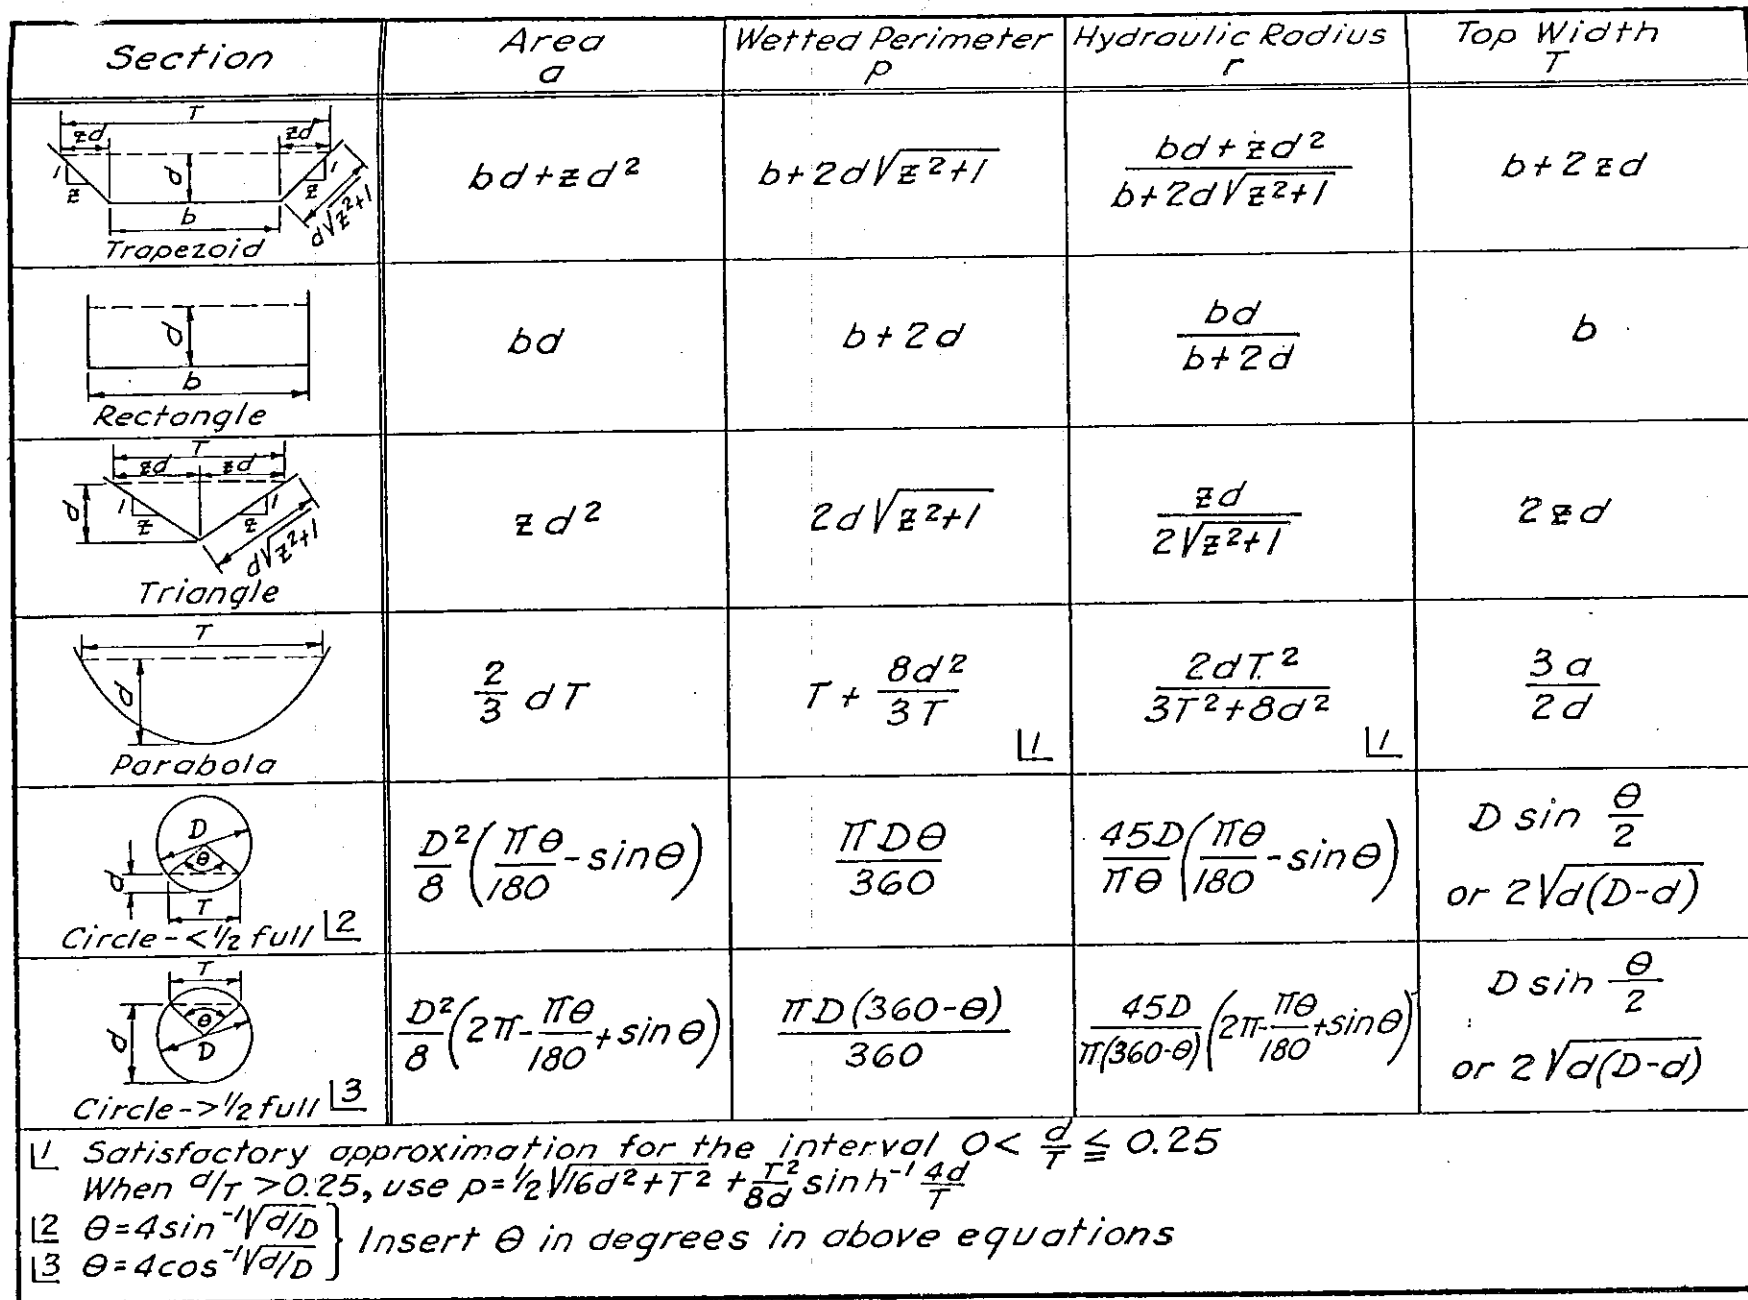 Section
Area
a
Wetted Perimeter
p
Hydraulic Radius
r
Top Width
T
T
zd zd
1 z d 1 z
b
d√z²+1
Trapezoid
bd+zd²
b+2d√z²+1
bd+zd²
b+2d√z²+1
b+2zd
d
b
Rectangle
bd
b+2d
bd
b+2d
b
T
zd zd
d 1 z 1 z
d√z²+1
Triangle
zd²
2d√z²+1
zd
2√z²+1
2zd
T
d
Parabola
2/3 dT
T + 8d²/3T
1
2dT²
3T²+8d²
1
3a
2d
D
θ
d
T
Circle-<1/2 full 2
D²/8 (πθ/180 - sinθ)
πDθ
360
45D/πθ (πθ/180 - sinθ)
D sin θ/2
or 2√d(D-d)
T
θ
d
D
Circle->1/2 full 3
D²/8 (2π-πθ/180 + sinθ)
πD(360-θ)
360
45D/π(360-θ) (2π-πθ/180 + sinθ)
D sin θ/2
or 2√d(D-d)
1 Satisfactory approximation for the interval 0< d/T ≦ 0.25
When d/T >0.25, use p=1/2√16d²+T² + T²/8d sinh⁻¹ 4d/T
2 θ=4sin⁻¹√d/D
3 θ=4cos⁻¹√d/D } Insert θ in degrees in above equations